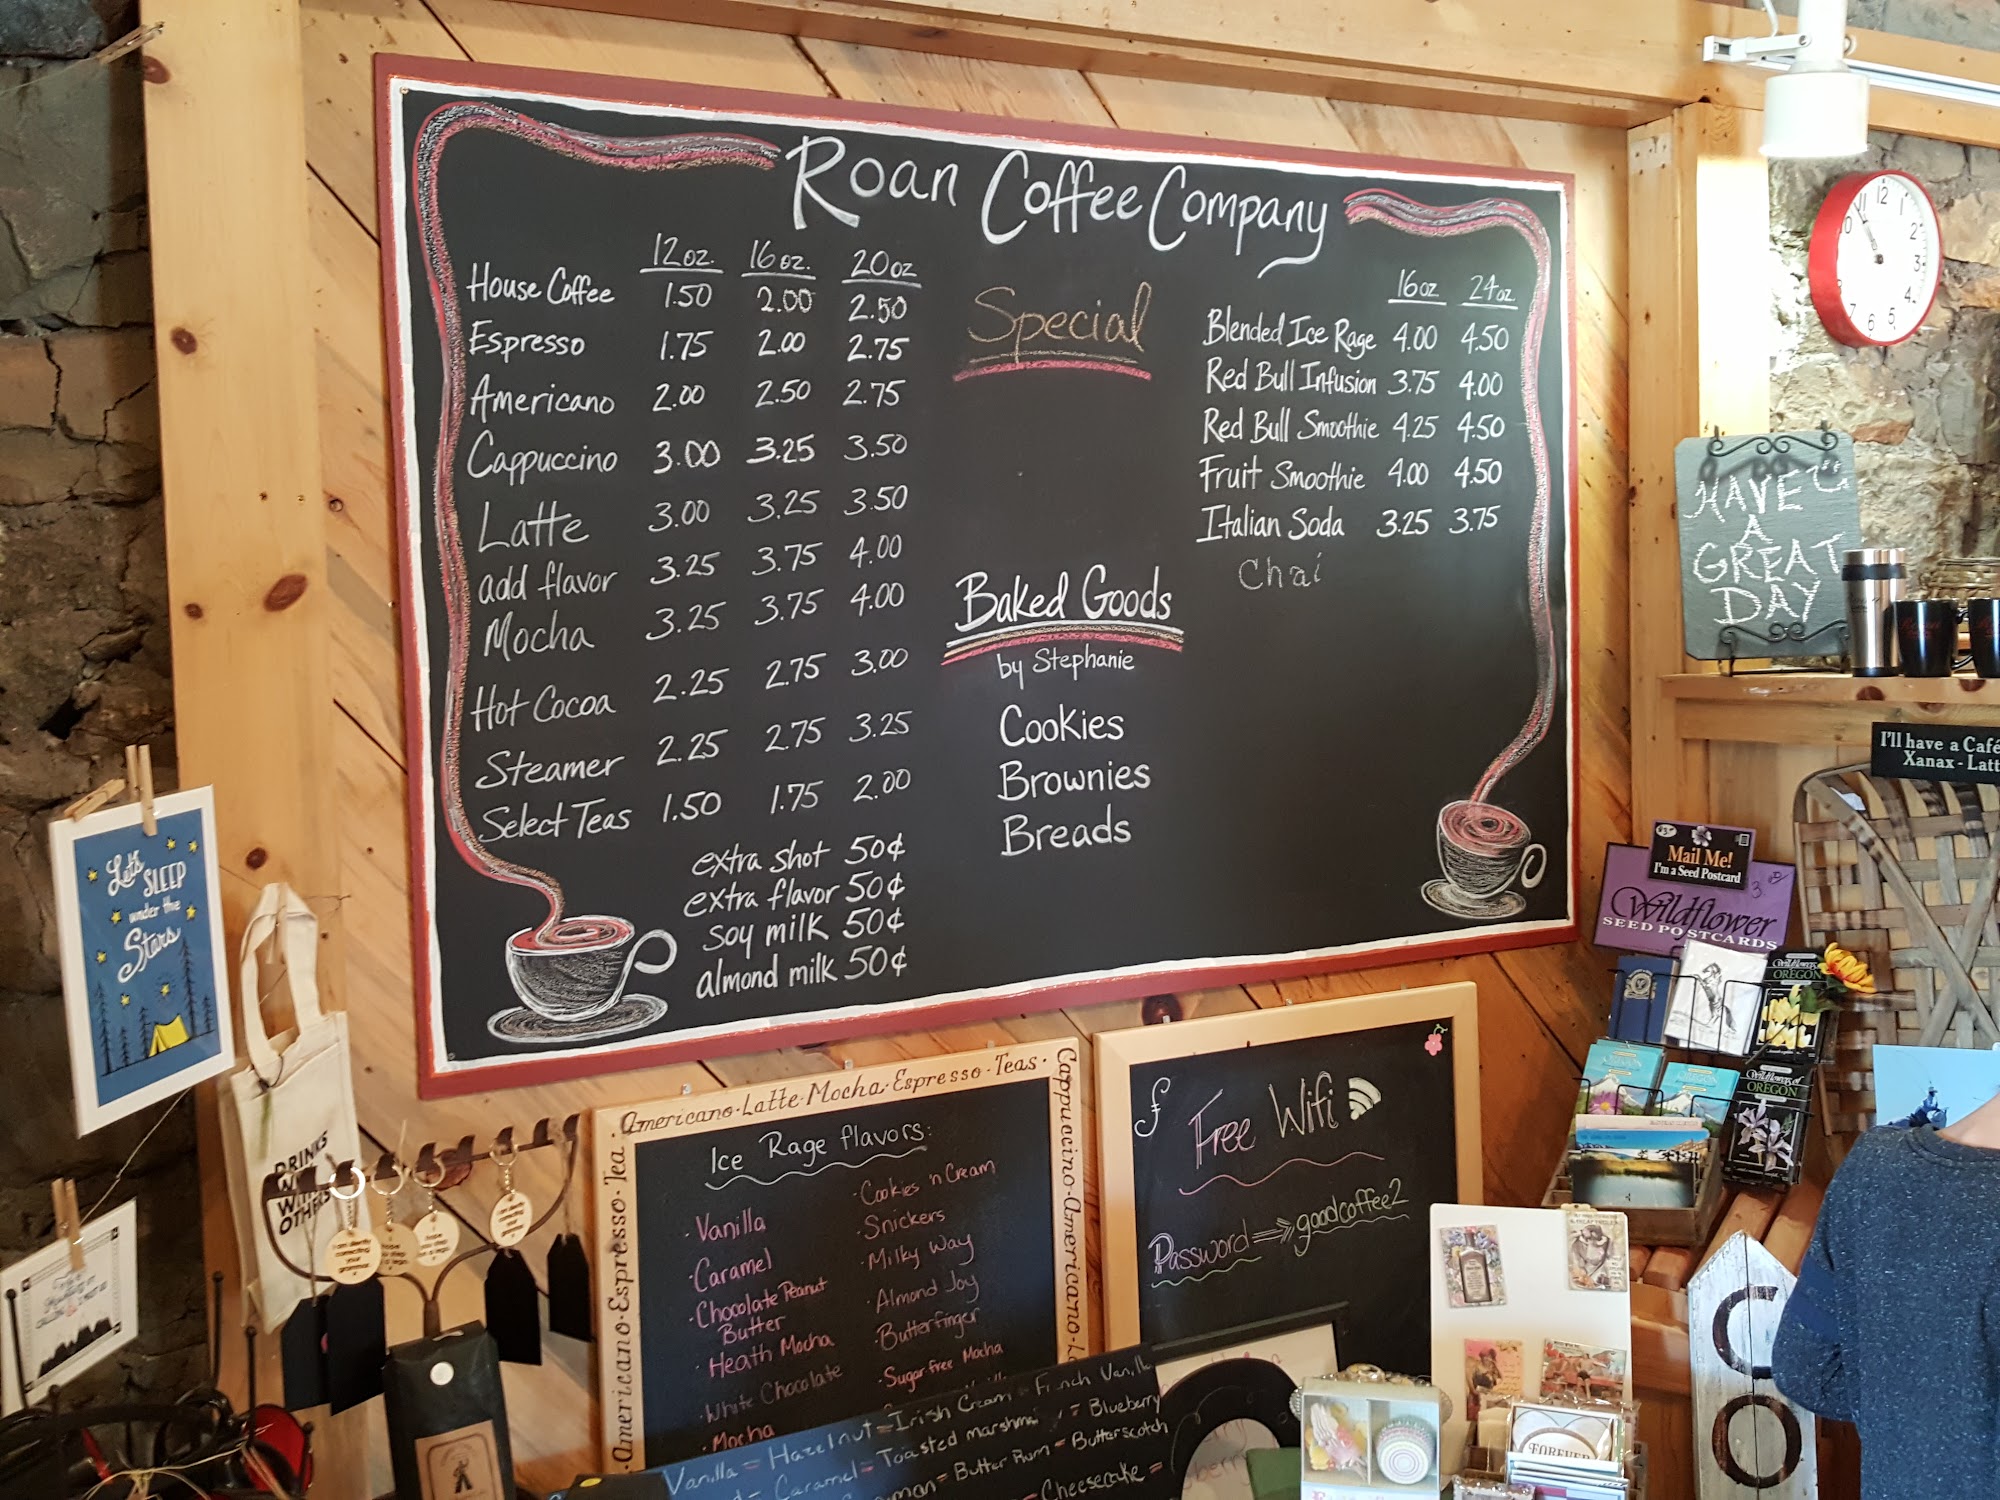 Roan Coffee Company
12oz. 16oz. 20oz
House Coffee 1.50 2.00 2.50
Espresso 1.75 2.00 2.75
Americano 2.00 2.50 2.75
Cappuccino 3.00 3.25 3.50
Latte 3.00 3.25 3.50
add flavor 3.25 3.75 4.00
Mocha 3.25 3.75 4.00
Hot Cocoa 2.25 2.75 3.00
Steamer 2.25 2.75 3.25
Select Teas 1.50 1.75 2.00
extra shot 50¢
extra flavor 50¢
soy milk 50¢
almond milk 50¢
Special
Baked Goods
by Stephanie
Cookies
Brownies
Breads
16oz 24oz
Blended Ice Rage 4.00 4.50
Red Bull Infusion 3.75 4.00
Red Bull Smoothie 4.25 4.50
Fruit Smoothie 4.00 4.50
Italian Soda 3.25 3.75
Chai
HAVE
A
GREAT
DAY
I'll have a Café
Xanax - Latt
Mail Me!
I'm a Seed Postcard
Wildflower
SEED POSTCARDS
OREGON
Wildflowers of
OREGON
Let's
SLEEP
under the
Stars
DRINKS
WITH
OTH
Americano · Latte · Mocha · Espresso · Teas ·
Cappuccino · Americano ·
Americano · Espresso · Tea ·
Ice Rage flavors:
· Vanilla
· Caramel
· Chocolate Peanut
Butter
· Heath Mocha
· White Chocolate
· Mocha
· Cookies 'n Cream
· Snickers
· Milky Way
· Almond Joy
· Butterfinger
· Sugar free Mocha
Free Wifi
Password ⇒ goodcoffee2
Vanilla = Hazelnut = Irish Cream = French Vanill
Caramel = Toasted marshm = Blueberry
Butter Rum = Butterscotch
Cheesecake =
FOREVER
CO
12 1 2 3 4 5 6 7